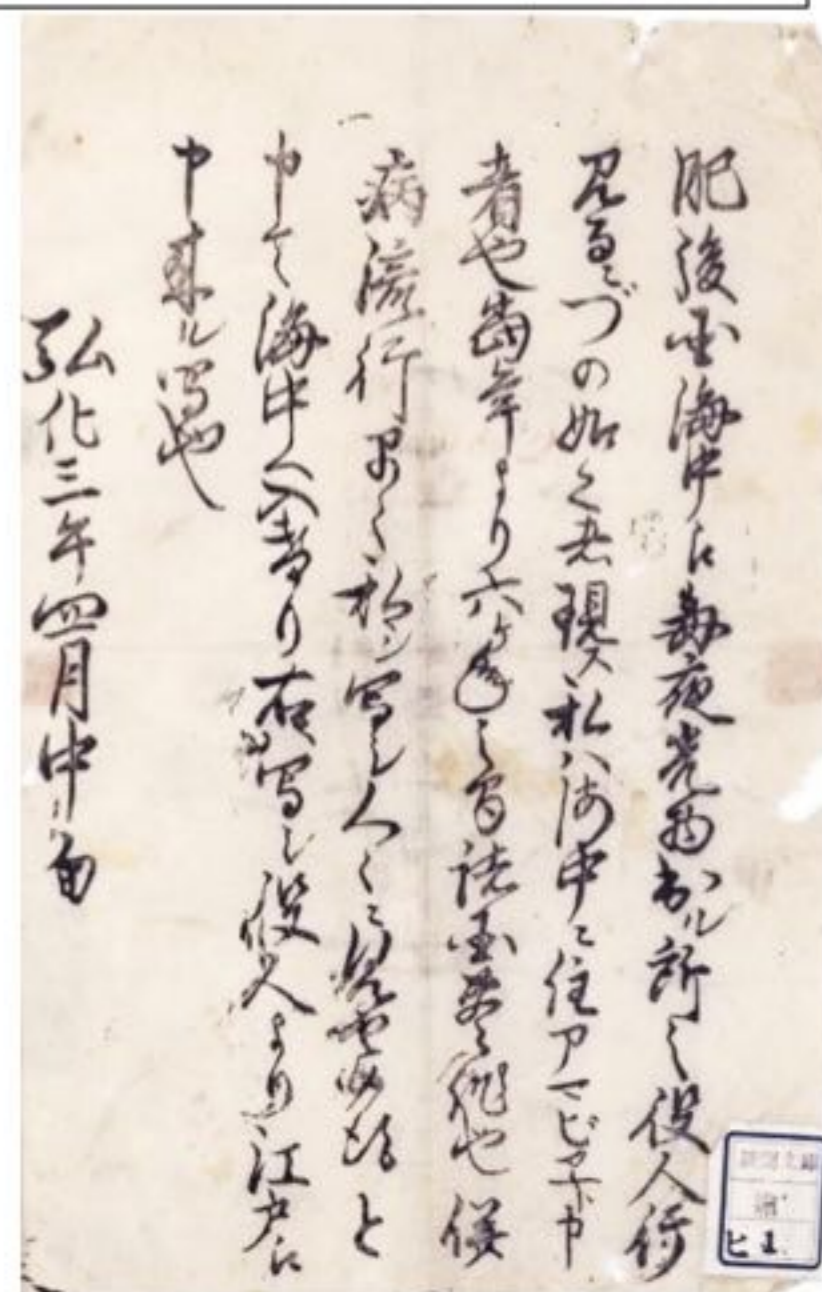 肥後国海中江毎夜光物出ル所之役人行
見るニづの如く者現ス私ハ海中ニ住アマビヱト申
者也当年より六ケ年之間諸国豊作也併
病流行早々私シ写シ人々ニ見せ候得と
申て海中へ入けり右写シ役人より江戸江
申来ル写也
弘化三年四月中旬